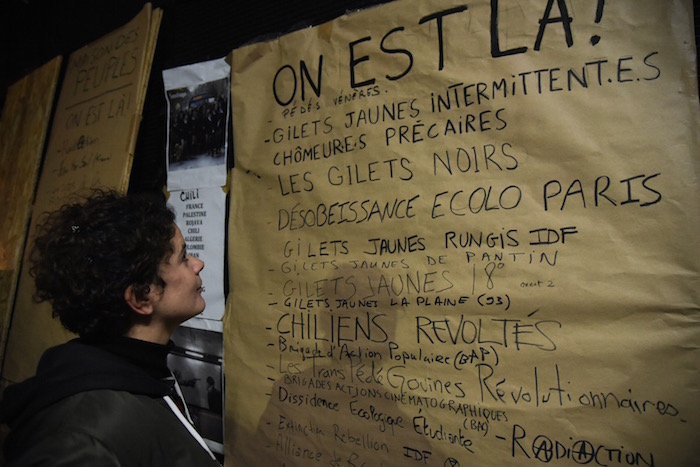 MAISON DES
PEUPLES
ON EST LÀ!
CHILI
FRANCE
PALESTINE
ROJAVA
CHILI
ALGERIE
COLOMBIE
ON EST LÀ!
- PÉDÉS VÉNÈRES.
- GILETS JAUNES INTERMITTENT.E.S
CHÔMEUR.E.S PRÉCAIRES
- LES GILETS NOIRS
- DÉSOBEISSANCE ECOLO PARIS
- GILETS JAUNES RUNGIS IDF
- GILETS JAUNES DE PANTIN
- GILETS JAUNES 18°
- GILETS JAUNES LA PLAINE (93)
- CHILIENS RÉVOLTÉS
- Brigade d'Action Populaire (BAP)
- Les TransPédéGouines Révolutionnaires.
- BRIGADES ACTIONS CINÉMATOGRAPHIQUES
(BAC)
- Dissidence Ecologique Étudiante
- RADIACTION
- Extinction Rebellion IDF
- Alliance de